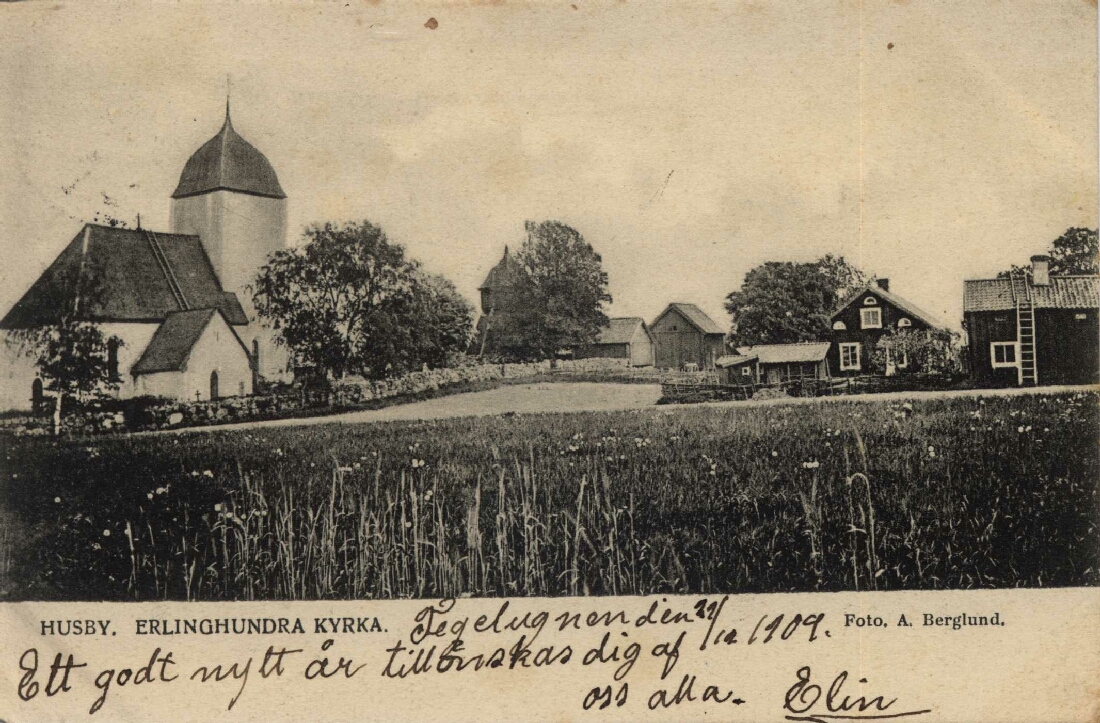 HUSBY. ERLINGHUNDRA KYRKA.
Tegelugnen den 29/12 1909.
Foto. A. Berglund.
Ett godt nytt år tillönskas dig af
oss alla. Elin